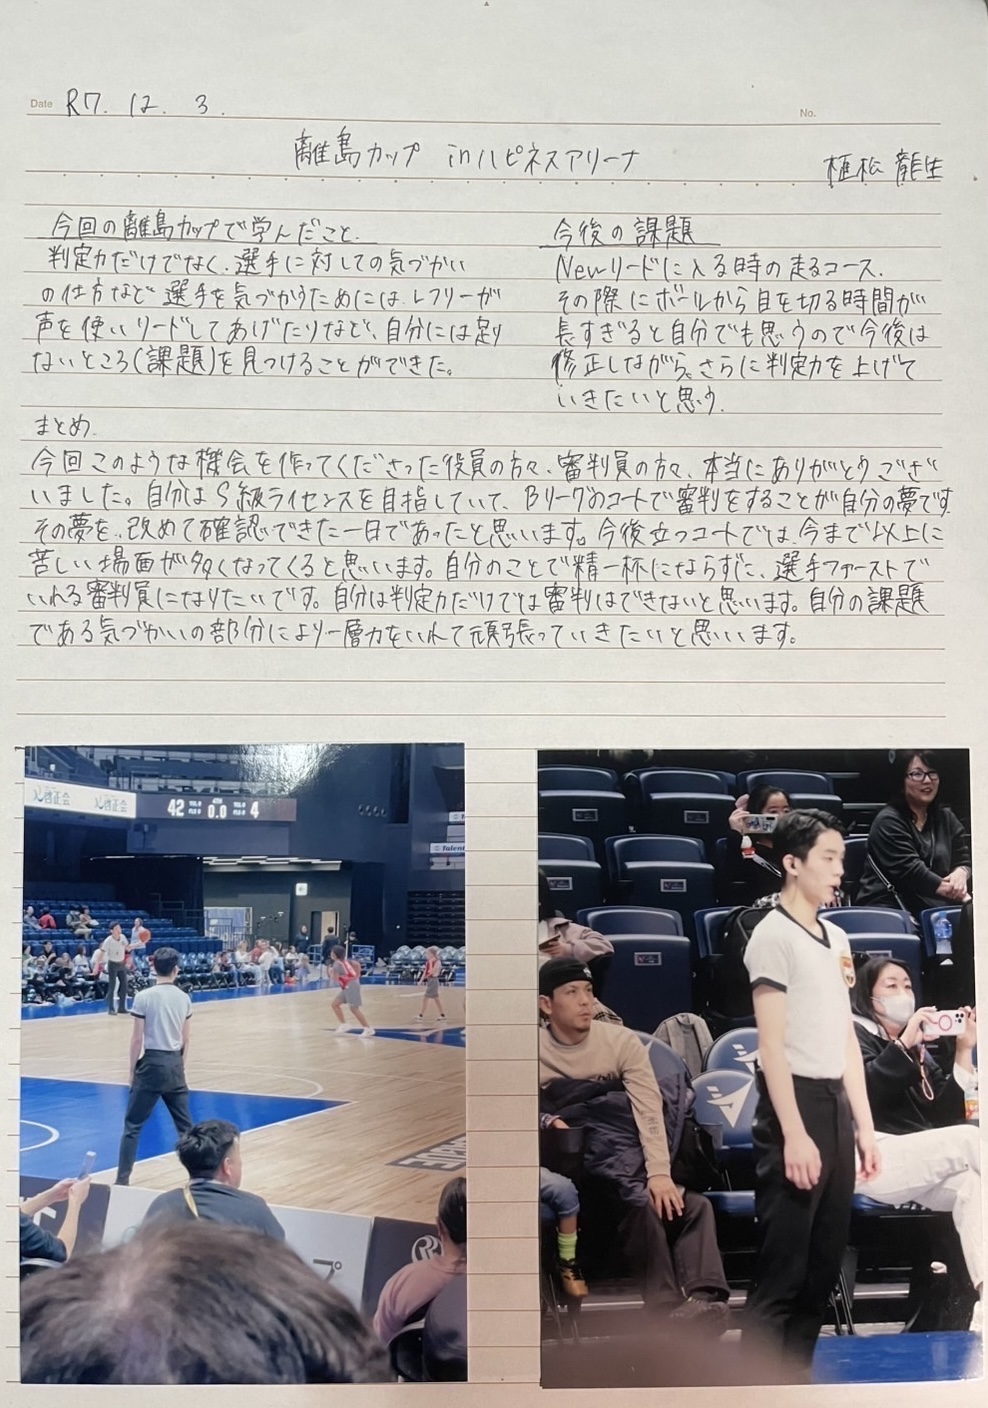 Date R7. 12. 3.
No.
離島カップ inハピネスアリーナ
植松 龍生
今回の離島カップで学んだこと.
判定力だけでなく、選手に対しての気づかい
の仕方など 選手を気づかうためには、レフリーが
声を使いリードしてあげたりなど、自分には足り
ないところ(課題)を見つけることができた。
今後の課題
Newリードに入る時の走るコース.
その際にボールから目を切る時間が
長すぎると自分でも思うので今後は
修正しながら、さらに判定力を上げて
いきたいと思う.
まとめ.
今回このような機会を作ってくださった役員の方々、審判員の方々、本当にありがとうござ
いました。自分はS級ライセンスを目指していて、Bリーグのコートで審判をすることが自分の夢です.
その夢を、改めて確認できた一日であったと思います。今後立つコートでは、今まで以上に
苦しい場面が多くなってくると思います。自分のことで精一杯にならずに、選手ファーストで
いれる審判員になりたいです。自分は判定力だけでは審判はできないと思います。自分の課題
である気づかいの部分により一層力をいれて頑張っていきたいと思いいます。
啓正会
啓正会
42 0.0 4
talent